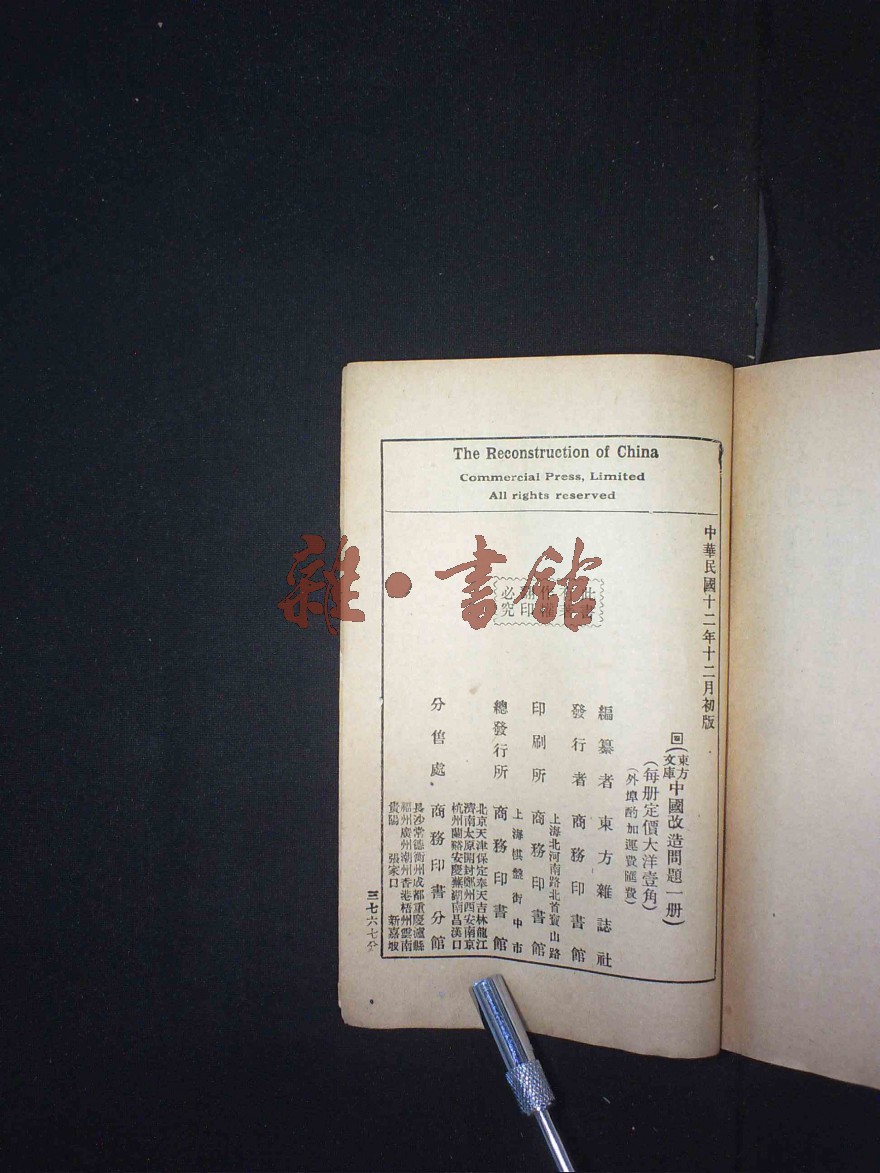 The Reconstruction of China
Commercial Press, Limited
All rights reserved
雜·書館
必究
印
中華民國十二年十二月初版
回(東方文庫)中國改造問題一册)
(每册定價大洋壹角)
(外埠酌加運費匯費)
編纂者 東方雜誌社
發行者 商務印書館
上海北河南路北首寶山路
印刷所 商務印書館
上海棋盤街中市
總發行所 商務印書館
北京天津保定奉天吉林龍江
濟南太原開封鄭州西安南京
杭州蘭谿安慶蕪湖南昌漢口
分售處 商務印書分館
長沙常德衡州成都重慶瀘縣
福州廣州潮州香港梧州雲南
貴陽 張家口 新嘉坡
三七六七分